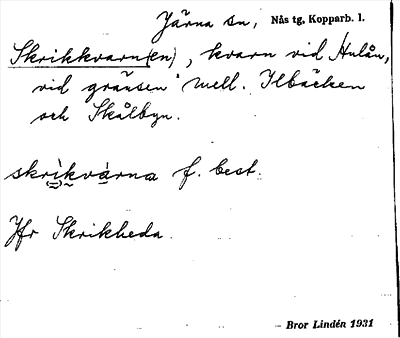 Järna sn, Nås tg, Kopparb. l.
Skrikkvarn(en), kvarn vid Hulån,
vid gränsen mell. Ilbäcken
och Skålbyn.
skrìkvárna f. best.
Jfr Skrikheda.
- Bror Lindén 1931